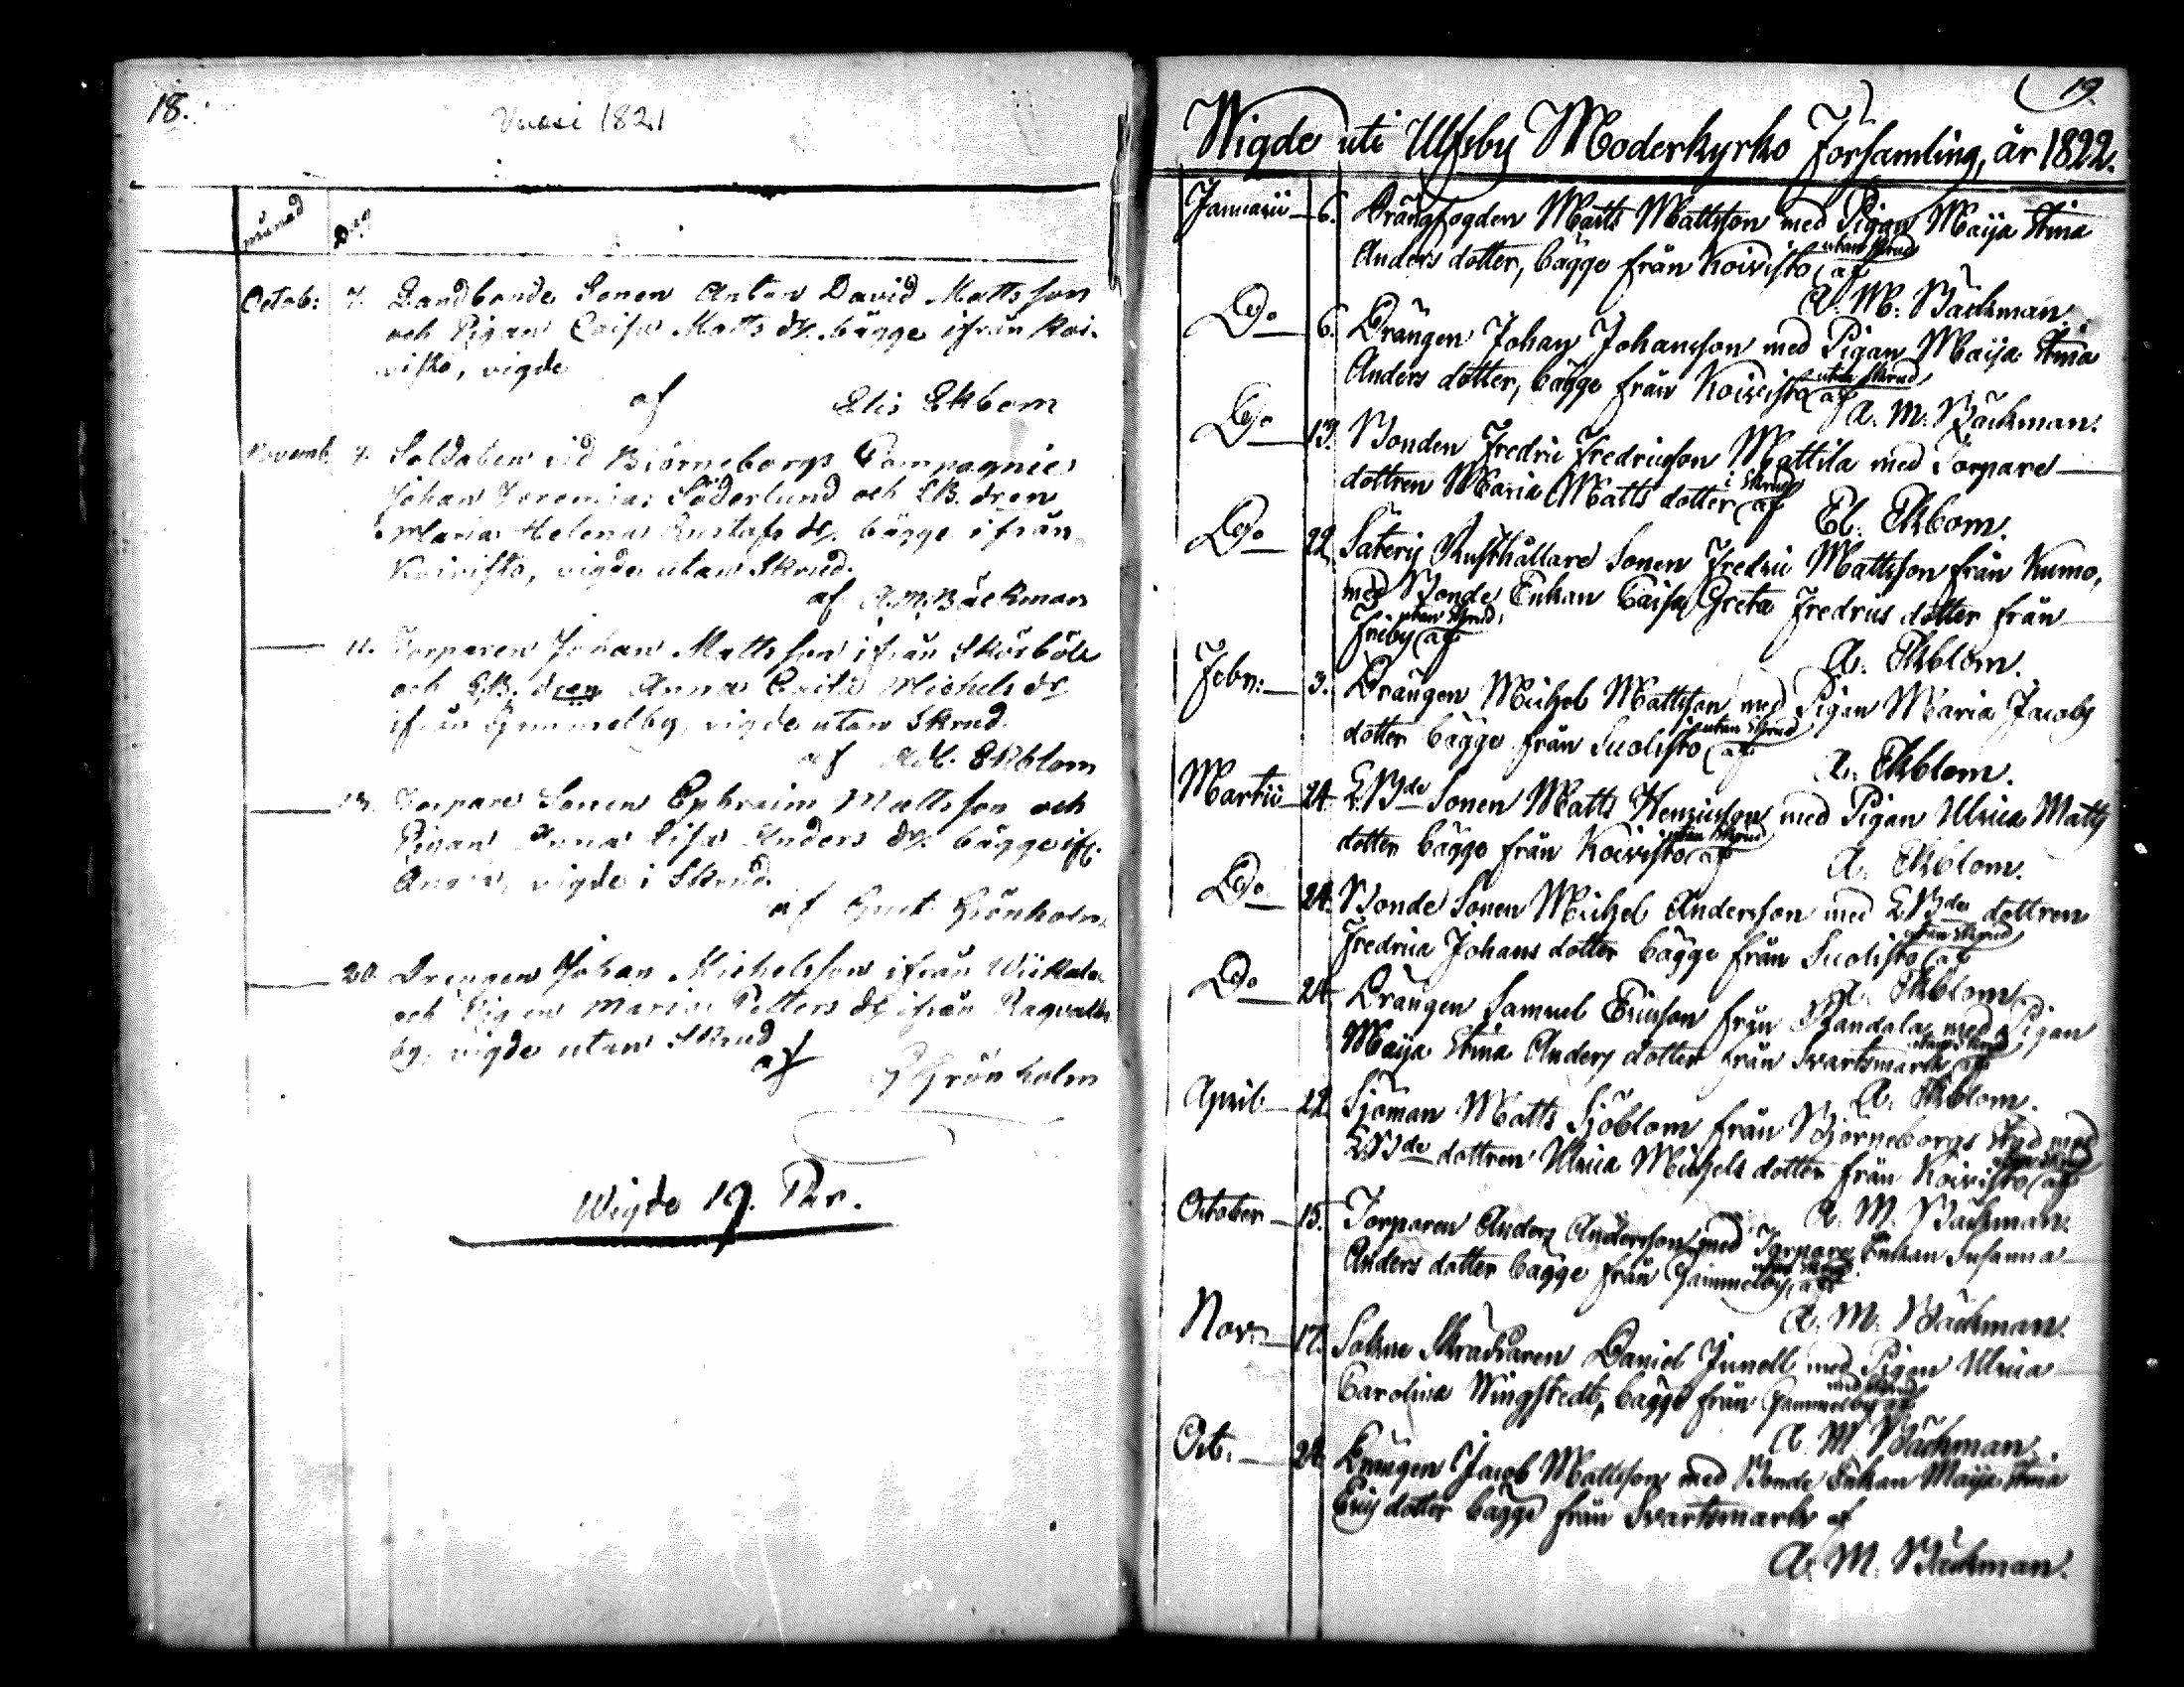 18.
Vuosi 1821
månad Dag
Octob: 7. Landbonde Sonen Anton David Mattsson
och Pigan Caisa Matts dr. bägge ifrån Koi-
visto, vigde
af Elis Ekbom
Novemb. 4. Soldaten vid Biörneborgs Compagnie
Johan Jeremias Söderlund och LB. dren
Maria Helena Gustafs dr. bägge ifrån
Koivisto, vigde utan Skrud.
af A.M. Bäckman
11. Torparen Johan Mattsson ifrån Skörböle
och LB. dren Anna Michels dr
ifrån Gammelby, vigde utan Skrud.
af Ad. Ekblom
Torpare Sonen Ephraim Mattsson och
Pigan Anna Lisa Anders dr. bägge ifr.
vigde i Skrud.
af Gust. Grönholm
20. Drengen Johan Michelsson ifrån
och Pigan Maria Petters dr ifrån Ragvalds
by, vigde utan Skrud
af G Grönholm
Wigde 19. Par.
19.
Wigde uti Ulfsby Moderkyrko Församling, år 1822.
Januarii 6. Drängfogden Matts Mattsson med Pigan Maija Stina
Anders dotter, bägge från Koivisto utan skrud af
A. M. Bäckman.
Do 6. Drängen Johan Johansson med Pigan Maija Stina
Anders dotter, bägge från Koivisto utan skrud af
A. M. Bäckman.
Do 13. Bonden Fredric Fredricsson Mattila med Torpare
dottren Maria Matts dotter i skrud af
El. Ekbom.
Do 22. Säteri Rusthållare Sonen Fredric Mattsson från Kumo,
med Bonde Enkan Caisa Greta Fredrics dotter från
Friby utan skrud, af
A. Ekblom.
Febr: 3. Drängen Michel Mattsson med Pigan Maria Jacobs
dotter bägge från Suolisto utan skrud af
A. Ekblom.
Martii 24. L.Bde Sonen Matts Henricsson med Pigan Ulrica Matts
dotter bägge från Koivisto utan skrud af
A. Ekblom.
Do 24. Bonde Sonen Michel Andersson med L.Bde dottren
Fredrica Johans dotter bägge från Suolisto utan skrud af
A. Ekblom.
Do 24. Drängen Samuel Ericsson från med Pigan
Maija Stina Anders dotter från Svartsmark utan skrud af
A. Ekblom.
April 22. Sjöman Matts Sjöblom från Björneborgs Stad med
L.Bde dottren Ulrica Michels dotter från Koivisto utan skrud af
A. M. Bäckman.
October 15. Torparen Anders Andersson med Torpare Enkan Susanna
Anders dotter bägge från Gammelby, utan skrud af
A. M. Bäckman.
Nov: 17. Sokne Skräddaren Daniel Junell med Pigan Ulrica
Carolina Wingstedt, bägge från Gammelby med skrud af
A. M. Bäckman.
Oct. 24. Drängen Jacob Mattsson med Bonde Enkan Maija Stina
Erics dotter bägge från Svartsmark af
A. M. Bäckman.